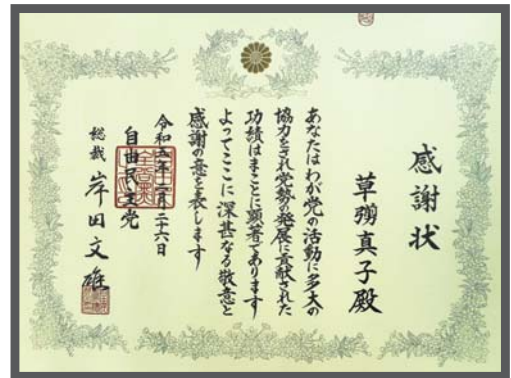 感謝状
草彅真子殿
あなたはわが党の活動に多大の
協力をされ党勢の発展に貢献された
功績はまことに顕著であります
よってここに深甚なる敬意と
感謝の意を表します
令和五年二月二十六日
自由民主党
総裁 岸田文雄